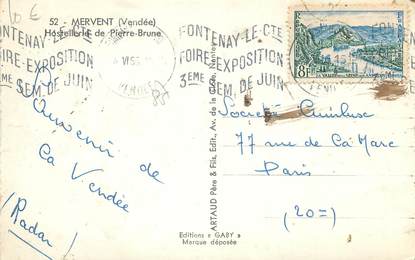 10 €
52 - MERVENT (Vendée)
Hostellerie de Pierre-Brune
FONTENAY-LE-CTE
FOIRE-EXPOSITION
3EME SEM. DE JUIN
FONTENAY-LE-CTE
FOIRE-EXPOSITION
3EME SEM. DE JUIN
VENDEE
8F
Souvenir de
la Vendée
(Radar)
ARTAUD Père & Fils, Edit., Av. de la Gare, Nantes
Société
77 rue de
Paris
(20=)
Editions « GABY »
Marque déposée